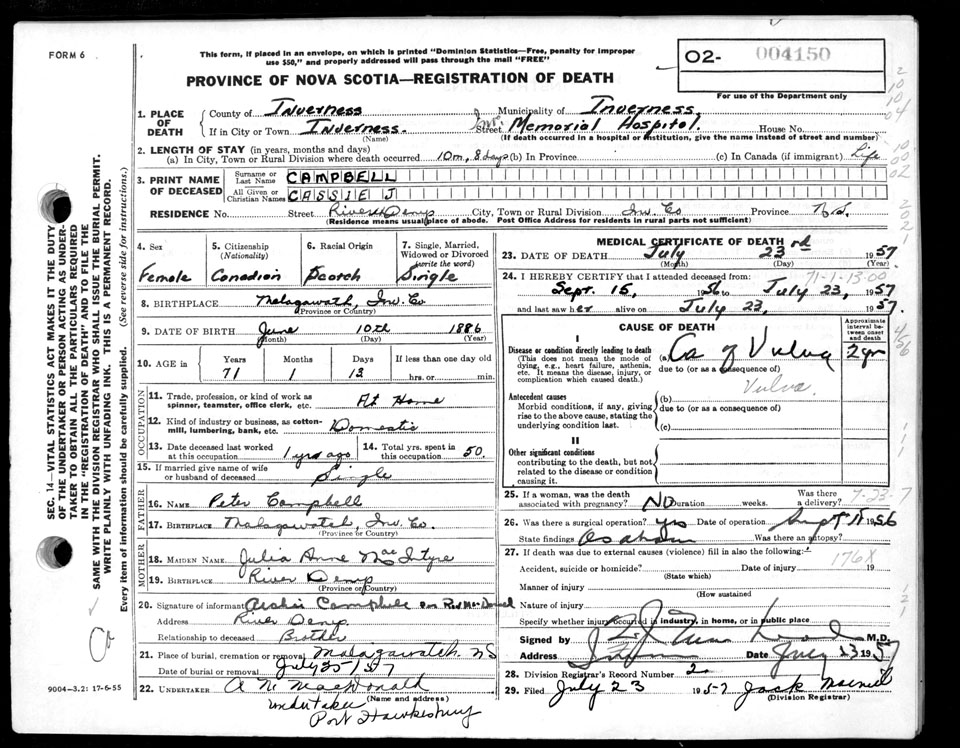 FORM 6
This form, if placed in an envelope, on which is printed "Dominion Statistics—Free, penalty for improper
use $50," and properly addressed will pass through the mail "FREE"
PROVINCE OF NOVA SCOTIA—REGISTRATION OF DEATH
02- 004150
For use of the Department only
1. PLACE OF DEATH
County of Inverness Municipality of Inverness
If in City or Town Inverness. Street Memorial Hospital House No.
(Name) (If death occurred in a hospital or institution, give the name instead of street and number)
2. LENGTH OF STAY (in years, months and days)
(a) In City, Town or Rural Division where death occurred 10 m, 8 days (b) In Province (c) In Canada (if immigrant) Life
3. PRINT NAME OF DECEASED
Surname or Last Name CAMPBELL
All Given or Christian Names CASSIE J
RESIDENCE No. Street River Denys City, Town or Rural Division Inv. Co Province N.S.
(Residence means usual place of abode. Post Office Address for residents in rural parts not sufficient)
4. Sex Female
5. Citizenship (Nationality) Canadian
6. Racial Origin Scotch
7. Single, Married, Widowed or Divorced (write the word) Single
8. BIRTHPLACE Malagawatch, Inv. Co
(Province or Country)
9. DATE OF BIRTH June 10th 1886
(Month) (Day) (Year)
10. AGE in
Years Months Days If less than one day old
71 1 13 hrs. or min.
OCCUPATION
11. Trade, profession, or kind of work as spinner, teamster, office clerk, etc. At Home
12. Kind of industry or business, as cotton-mill, lumbering, bank, etc. Domestic
13. Date deceased last worked at this occupation 1 yrs ago
14. Total yrs. spent in this occupation 50.
15. If married give name of wife or husband of deceased Single
FATHER
16. NAME Peter Campbell
17. BIRTHPLACE Malagawatch, Inv. Co.
(Province or Country)
MOTHER
18. MAIDEN NAME Julia Anne MacIntyre
19. BIRTHPLACE River Denys
(Province or Country)
20. Signature of informant Archie Campbell
Address River Denys
Relationship to deceased Brother
21. Place of burial, cremation or removal Malagawatch NS
Date of burial or removal July 25-1957
22. UNDERTAKER A. M. MacDonald
(Name and address)
undertaker
Port Hawkesbury
9004-3.2: 17-6-55
MEDICAL CERTIFICATE OF DEATH
23. DATE OF DEATH July 23rd 1957
(Month) (Day) (Year)
24. I HEREBY CERTIFY that I attended deceased from:
71-1-13-00
Sept. 15, 1956 to July 23, 1957
and last saw her alive on July 23, 1957.
CAUSE OF DEATH
Approximate interval between onset and death
I
Disease or condition directly leading to death
(This does not mean the mode of dying, e.g., heart failure, asthenia, etc. It means the disease, injury, or complication which caused death.)
(a) Ca of Vulva 2 yr
due to (or as a consequence of)
Vulva
Antecedent causes
Morbid conditions, if any, giving rise to the above cause, stating the underlying condition last.
(b)
due to (or as a consequence of)
(c)
II
Other significant conditions
contributing to the death, but not related to the disease or condition causing it.
25. If a woman, was the death associated with pregnancy? NO Duration weeks. Was there a delivery?
7-23-7
26. Was there a surgical operation? yes Date of operation Sept 1956
State findings Was there an autopsy?
27. If death was due to external causes (violence) fill in also the following:
176X
Accident, suicide or homicide? Date of injury 19
(State which)
Manner of injury
(How sustained
Nature of injury
Specify whether injury occurred in industry, in home, or in public place
Signed by M.D.
Address Date July 23 1957
28. Division Registrar's Record Number 2
29. Filed July 23 1957
(Division Registrar)
SEC. 14—VITAL STATISTICS ACT MAKES IT THE DUTY
OF THE UNDERTAKER OR PERSON ACTING AS UNDER-
TAKER TO OBTAIN ALL THE PARTICULARS REQUIRED
IN THE "REGISTRATION OF DEATH" AND TO FILE THE
SAME WITH THE DIVISION REGISTRAR WHO SHALL ISSUE THE BURIAL PERMIT.
WRITE PLAINLY WITH UNFADING INK. THIS IS A PERMANENT RECORD.
Every item of information should be carefully supplied. (See reverse side for instructions.)